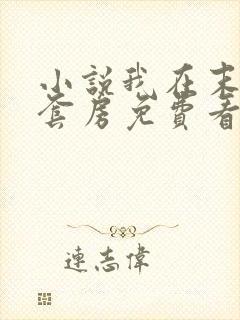 小說我在末
套房免費看
連志偉